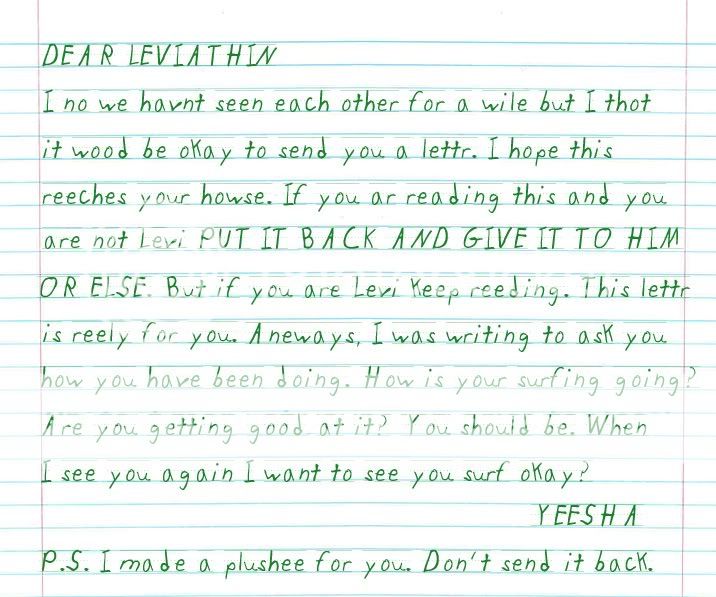 DEAR LEVIATHIN
I no we havnt seen each other for a wile but I thot
it wood be okay to send you a lettr. I hope this
reeches your howse. If you ar reading this and you
are not Levi PUT IT BACK AND GIVE IT TO HIM
OR ELSE. But if you are Levi keep reeding. This lettr
is reely for you. Aneways, I was writing to ask you
how you have been doing. How is your surfing going?
Are you getting good at it? You should be. When
I see you again I want to see you surf okay?
YEESHA
P.S. I made a plushee for you. Don't send it back.